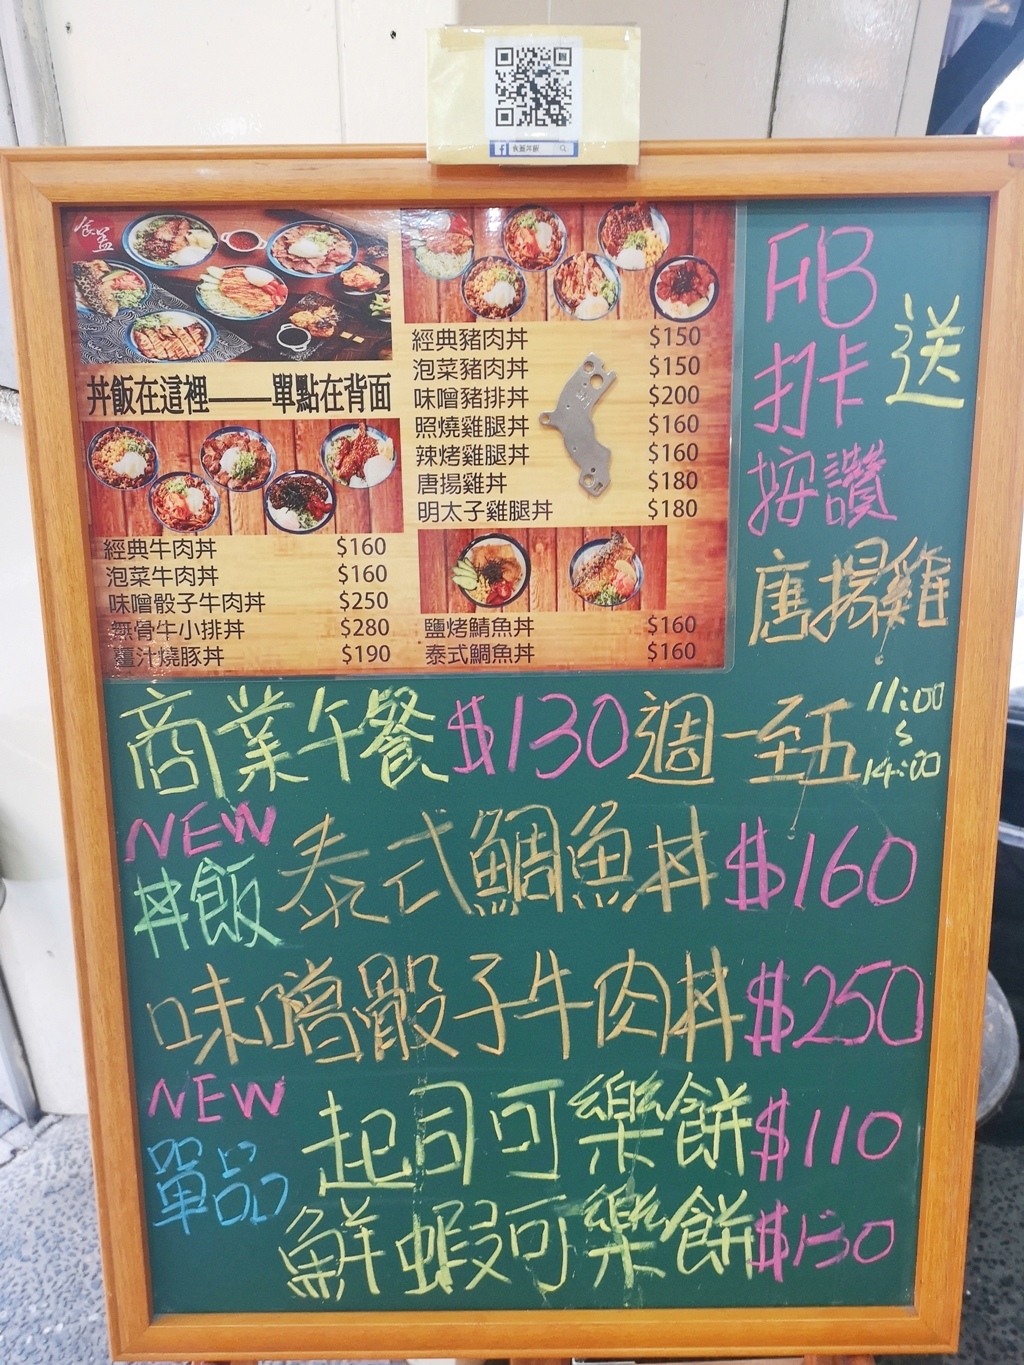 食蓋丼飯
食蓋
丼飯在這裡——單點在背面
經典牛肉丼 $160
泡菜牛肉丼 $160
味噌骰子牛肉丼 $250
無骨牛小排丼 $280
薑汁燒豚丼 $190
經典豬肉丼 $150
泡菜豬肉丼 $150
味噌豬排丼 $200
照燒雞腿丼 $160
辣烤雞腿丼 $160
唐揚雞丼 $180
明太子雞腿丼 $180
鹽烤鯖魚丼 $160
泰式鯛魚丼 $160
FB
打卡
按讚
送
唐揚雞
商業午餐 $130 週一至五 11:00 ~ 14:00
NEW
丼飯
泰式鯛魚丼 $160
味噌骰子牛肉丼 $250
NEW
單品
起司可樂餅 $110
鮮蝦可樂餅 $130